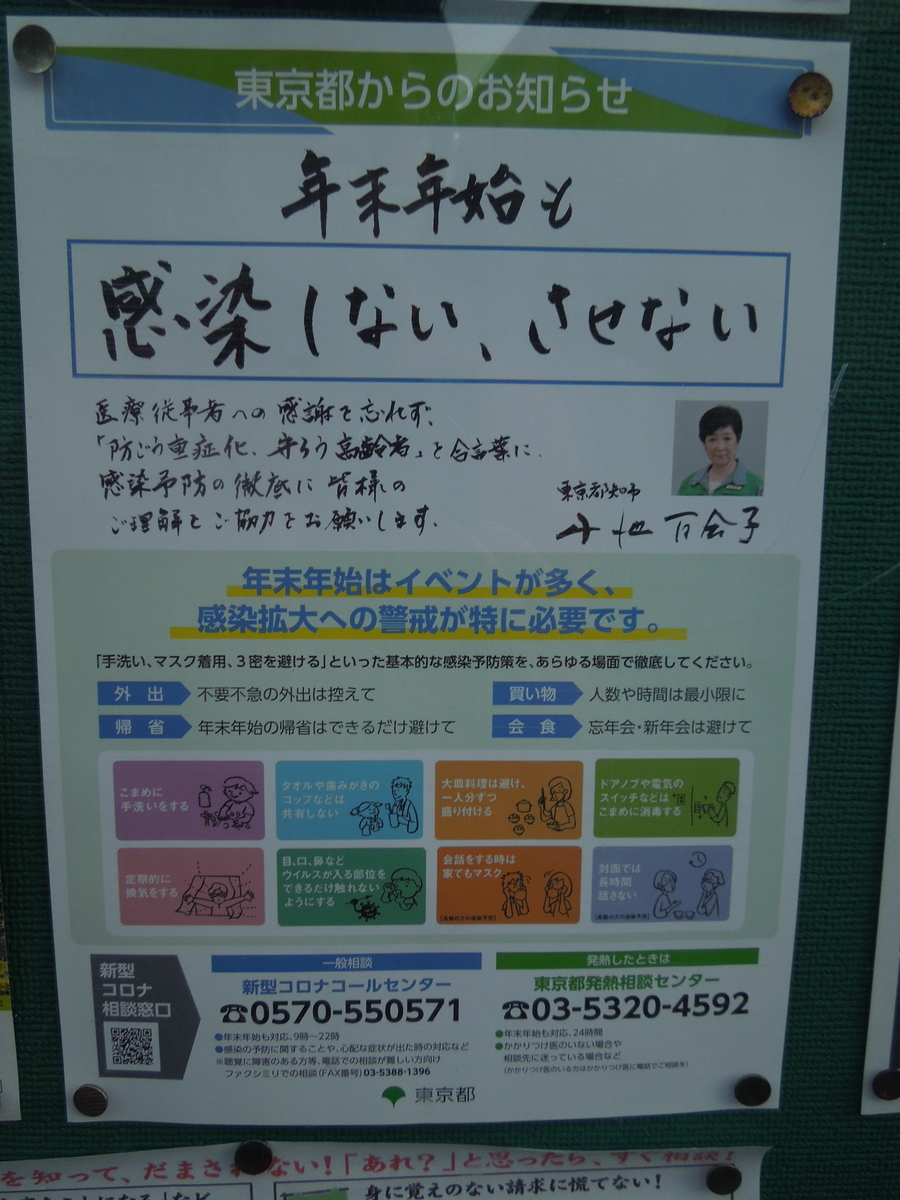 東京都からのお知らせ
年末年始も
感染しない、させない
医療従事者への感謝を忘れず、
「防ごう重症化、守ろう高齢者」を合言葉に、
感染予防の徹底に皆様の
ご理解とご協力をお願いします。
東京都知事
小池百合子
年末年始はイベントが多く、
感染拡大への警戒が特に必要です。
「手洗い、マスク着用、3密を避ける」といった基本的な感染予防策を、あらゆる場面で徹底してください。
外出 不要不急の外出は控えて
買い物 人数や時間は最小限に
帰省 年末年始の帰省はできるだけ避けて
会食 忘年会・新年会は避けて
こまめに
手洗いをする
タオルや歯みがきの
コップなどは
共有しない
大皿料理は避け、
一人分ずつ
盛り付ける
ドアノブや電気の
スイッチなどは
こまめに消毒する
定期的に
換気をする
目、口、鼻など
ウイルスが入る部位を
できるだけ触れない
ようにする
会話をする時は
家でもマスク
【高齢の方の感染予防】
対面では
長時間
話さない
【高齢の方の感染予防】
新型
コロナ
相談窓口
一般相談
新型コロナコールセンター
☎0570-550571
●年末年始も対応、9時〜22時
●感染の予防に関することや、心配な症状が出た時の対応など
※聴覚に障害のある方等、電話での相談が難しい方向け
ファクシミリでの相談(FAX番号)03-5388-1396
発熱したときは
東京都発熱相談センター
☎03-5320-4592
●年末年始も対応、24時間
●かかりつけ医のいない場合や
相談先に迷っている場合など
(かかりつけ医のいる方はかかりつけ医に電話でご相談を)
東京都
を知って、だまされない!「あれ?」と思ったら、すぐ相談!
身に覚えのない請求に慌てない!